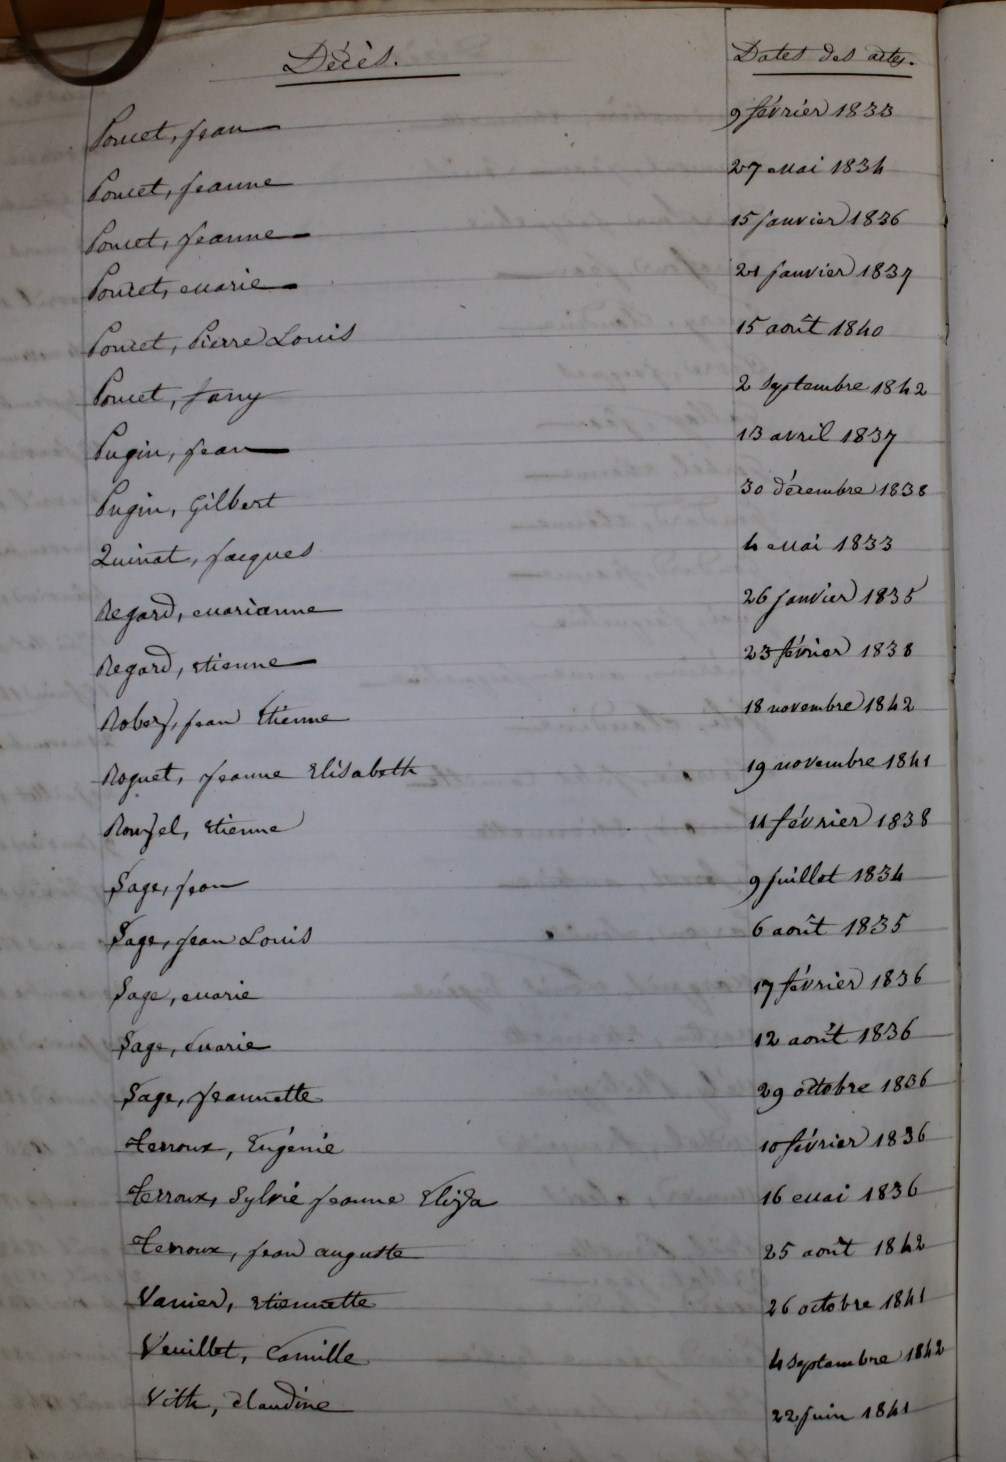 Décès. Dates des actes.
Poncet, Jean 9 février 1833
Poncet, Jeanne 27 Mai 1834
Poncet, Jeanne 15 Janvier 1836
Poncet, Marie 21 Janvier 1837
Poncet, Pierre Louis 15 août 1840
Poncet, fany 2 Septembre 1842
Pugin, Jean 13 avril 1837
Pugin, Gilbert 30 Décembre 1838
Quinat, Jacques 4 Mai 1833
Regard, Marianne 26 Janvier 1835
Regard, Etienne 23 février 1838
Robez, Jean Etienne 18 novembre 1842
Roguet, Jeanne Elisabeth 19 novembre 1841
Rouzel, Etienne 11 février 1838
Sage, Jean 9 Juillet 1834
Sage, Jean Louis 6 août 1835
Sage, Marie 17 février 1836
Sage, Marie 12 août 1836
Sage, Jeannette 29 octobre 1836
Terroux, Eugénie 10 février 1836
Terroux, Sylvie Jeanne Eliza 16 Mai 1836
Terroux, Jean auguste 25 août 1842
Vanier, Etiennette 26 octobre 1841
Veuillet, Camille 4 Septembre 1842
Vith, Claudine 22 Juin 1841